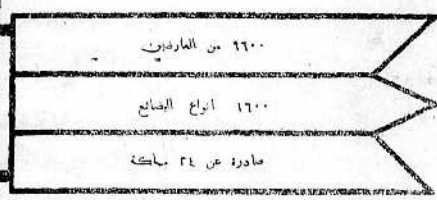 ٦٦٠٠ من العارضين
١٦٠٠ أنواع البضائع
صادرة عن ٢٤ مملكة